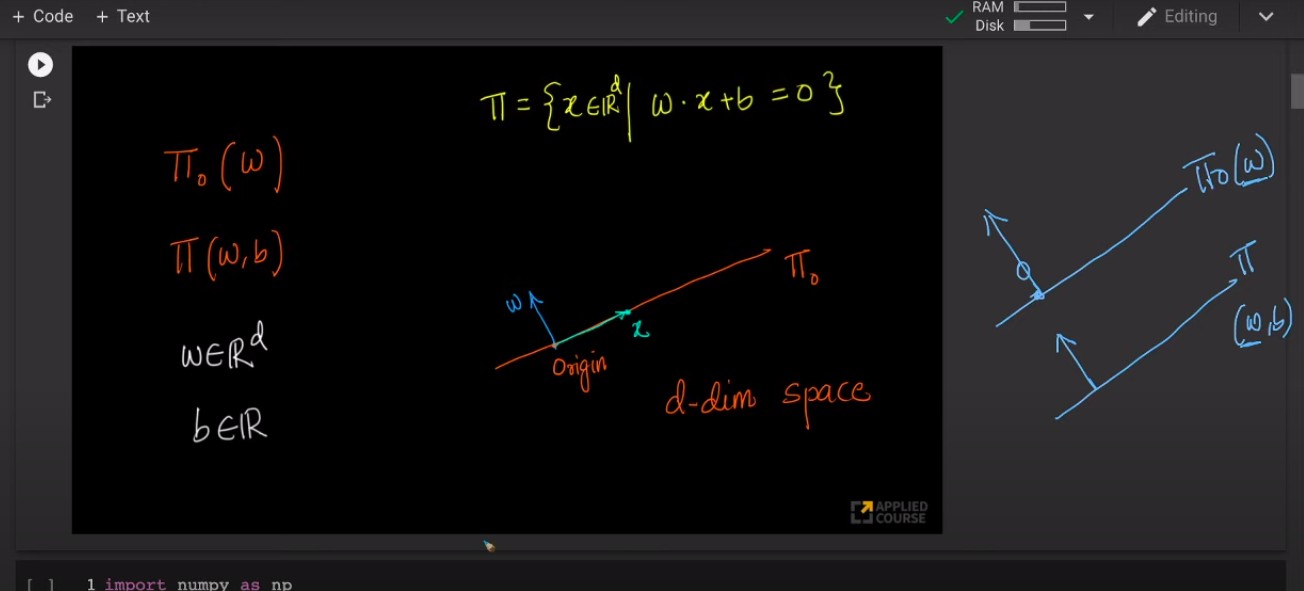 + Code + Text
RAM
Disk
Editing
π = {x ∈ ℝᵈ | w · x + b = 0}
π₀(w)
π(w,b)
w ∈ ℝᵈ
b ∈ ℝ
w
x
Origin
π₀
d-dim space
π₀(w)
π
(w,b)
APPLIED
COURSE
[ ] 1 import numpy as np